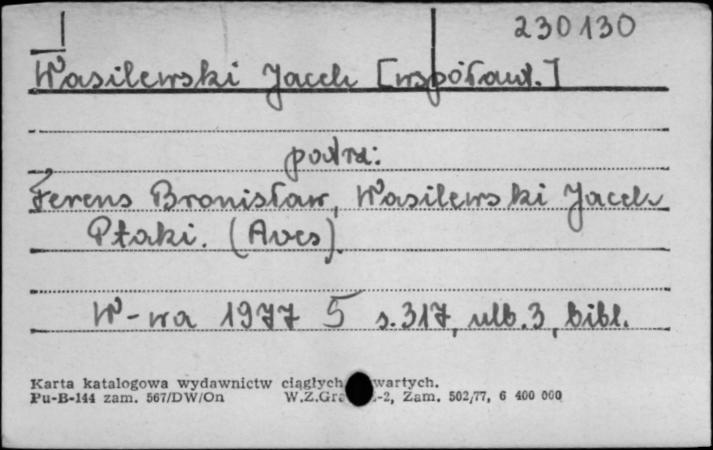 230130
Wasilewski Jacek [współaut.]
patrz:
Ferens Bronisław, Wasilewski Jacek
Ptaki. (Aves).
W-wa 1977 5 s. 317, nlb. 3, bibl.
Karta katalogowa wydawnictw ciągłych wartych.
Pu-B-144 zam. 567/DW/On W.Z.Gra -2, Zam. 502/77, 6 400 000